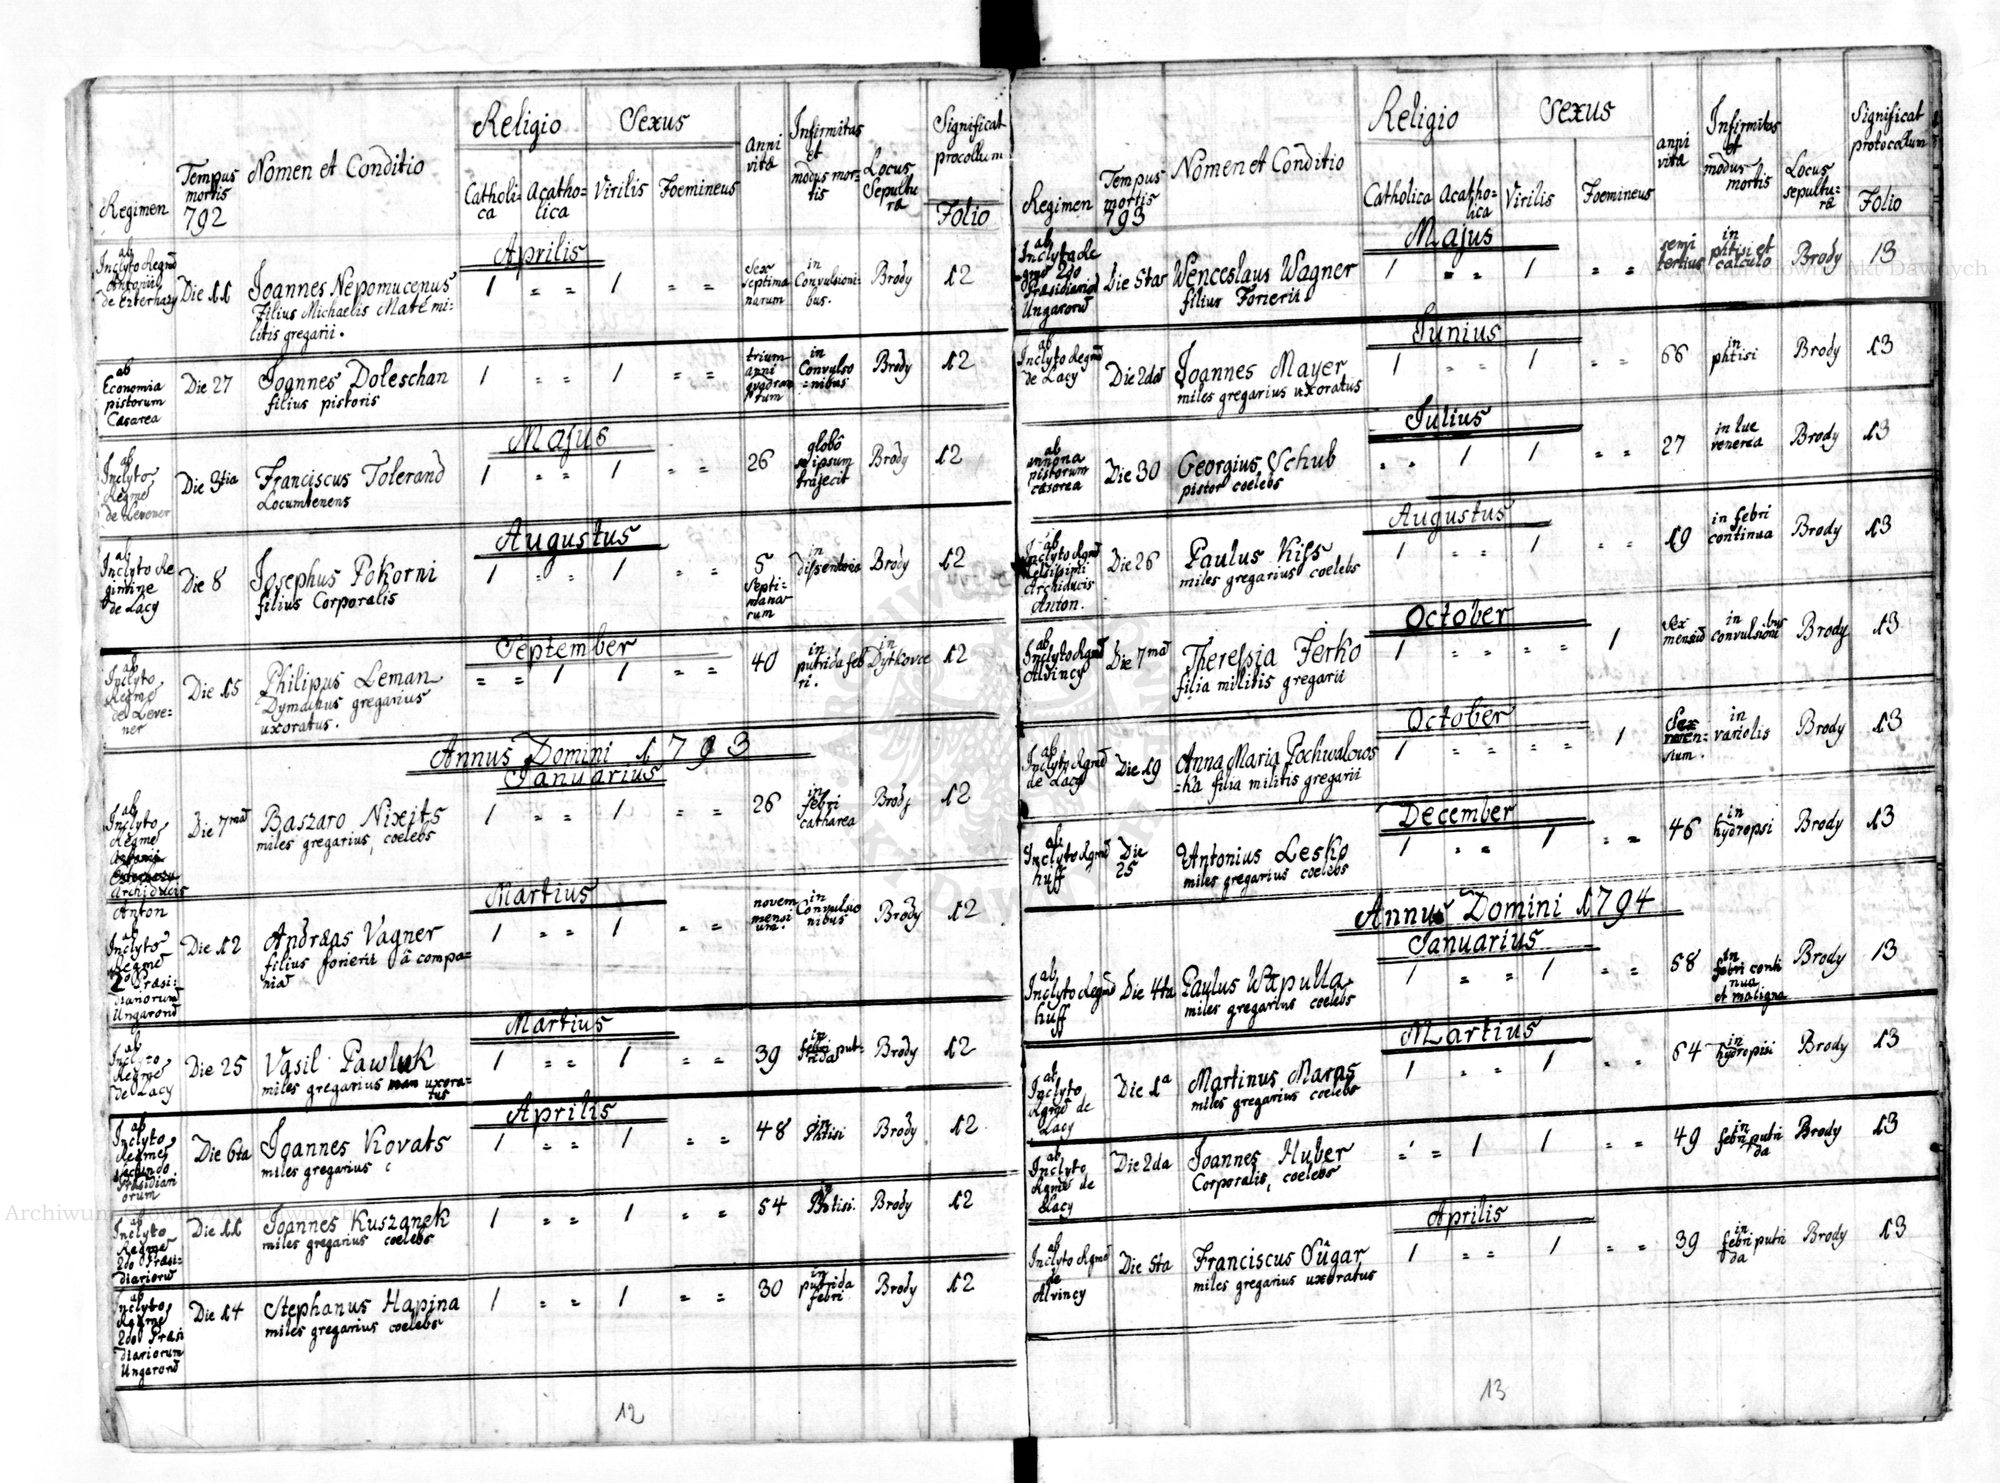 Religio
Sexus
Regimen
Tempus mortis 792
Nomen et Conditio
Catholica
Acatholica
Virilis
Foemineus
anni vitæ
Infirmitas et modus mortis
Locus Sepulturæ
Significat procollum
Folio
Aprilis
ab Inclyto Regmē Antonii de Ezterhazy
Die 11
Joannes Nepomucenus
Filius Michaelis Maté mi-
litis gregarii.
1 = = 1 = =
sex septimanarum
in Convulsionibus.
Brody
12
ab Economia pistorum Cæsarea
Die 27
Joannes Doleschan
filius pistoris
1 = = 1 = =
trium anni quadrantum
in Convulsionibus
Brody
12
Majus
ab Inclyto Regme de Levener
Die 3tia
Franciscus Tolerand
Locumtenens
1 = = 1 = =
26
globô se ipsum trajecit
Brody
12
Augustus
ab Inclyto Regimine de Lacy
Die 8
Josephus Pokorni
filius Corporalis
1 = = 1 = =
5 Septimanarum
in dissenteria
Brody
12
September
ab Inclyto Regme de Levener
Die 15
Philipus Leman
gregarius
uxoratus.
= = 1 1 = =
40
in putrida febri.
in Dytkovce
12
Annus Domini 1793
Januarius
ab Inclyto Regme Archiducis Anton
Die 7mâ
Baszaro Nixits
miles gregarius, coelebs
1 = = 1 = =
26
in febri catharea
Brody
12
Martius
ab Inclyto Regme 2do Præsidianorum Ungarorum
Die 12
Andræas Vagner
filius forierii à compa=
niâ
1 = = 1 = =
novem mensium.
in Convulsionibus
Brody
12
Martius
ab Inclyto Regme de Lacy
Die 25
Vasil Pawluk
miles gregarius uxora=
tus
1 = = 1 = =
39
in febri putrida
Brody
12
Aprilis
ab Inclyto Regme secundo Præsidiariorum
Die 6ta
Joannes Kovats
miles gregarius c
1 = = 1 = =
48
in Phtisi
Brody
12
ab Inclyto Regme 2do Præsidiariorū
Die 11
Joannes Kuszanek
miles gregarius coelebs
1 = = 1 = =
54
in Phtisi.
Brody
12
ab Inclyto Regme 2do Præsidiariorum Ungarorū
Die 14
Stephanus Hapina
miles gregarius coelebs
1 = = 1 = =
30
in putrida febri
Brody
12
12
Religio
Sexus
Regimen
Tempus mortis 793
Nomen et Conditio
Catholica
Acatholica
Virilis
Foemineus
anni vitæ
Infirmitas et modus mortis
Locus sepulturæ
Significat protocollum
Folio
Majus
ab Inclyto Regme 2do Præsidiariorū Ungarorū
Die 5tas
Wenceslaus Wagner
filius Forierii
1 = = 1 = =
semi tertius
in ptisi et calculo
Brody
13
Junius
ab Inclyto Regmē de Lacy
Die 2dâ
Joannes Mayer
miles gregarius uxoratus
1 = = 1 = =
66
in phtisi
Brody
13
Julius
ab annona pistorum cæsarea
Die 30
Georgius Schub
pistor coelebs
= = 1 1 = =
27
in lue venerea
Brody
13
Augustus
ab Inclyto Rgmē Celsissimi Archiducis Anton.
Die 26
Paulus Kiss
miles gregarius coelebs
1 = = 1 = =
19
in febri continua
Brody
13
October
ab Inclyto Rgmē Alvincy
Die 7mâ
Theressia Ferko
filia militis gregarii
1 = = = = 1
sex mensiū
in convulsionibus
Brody
13
October
ab Inclyto Rgmē de Lacy
Die 19
Anna Maria Pochwalows
=ka filia militis gregarii
1 = = = = 1
Sex mensium.
in variolis
Brody
13
December
ab Inclyto Rgmē huff
Die 25
Antonius Lesko
miles gregarius coelebs
1 = = 1 = =
46
in hydropsi
Brody
13
Annus Domini 1794
Januarius
ab Inclyto Regmē huff
Die 4ta
Paulus
miles gregarius coelebs
1 = = 1 = =
58
in febri continua et maligna
Brody
13
Martius
ab Inclyto Rgmē de Lacy
Die 1a
Martinus Maras
miles gregarius coelebs
1 = = 1 = =
64
in hydropisi
Brody
13
ab Inclyto Rgmē de Lacy
Die 2da
Joannes Huber
Corporalis, coelebs
= = 1 1 = =
49
in febri putrida
Brody
13
Aprilis
ab Inclyto Rgmē de Alvincy
Die 5ta
Franciscus Sûgar
miles gregarius uxoratus
1 = = 1 = =
39
in febri putrida
Brody
13
13
Archiwum Główne Akt Dawnych
Archiwum Główne Akt Dawnych